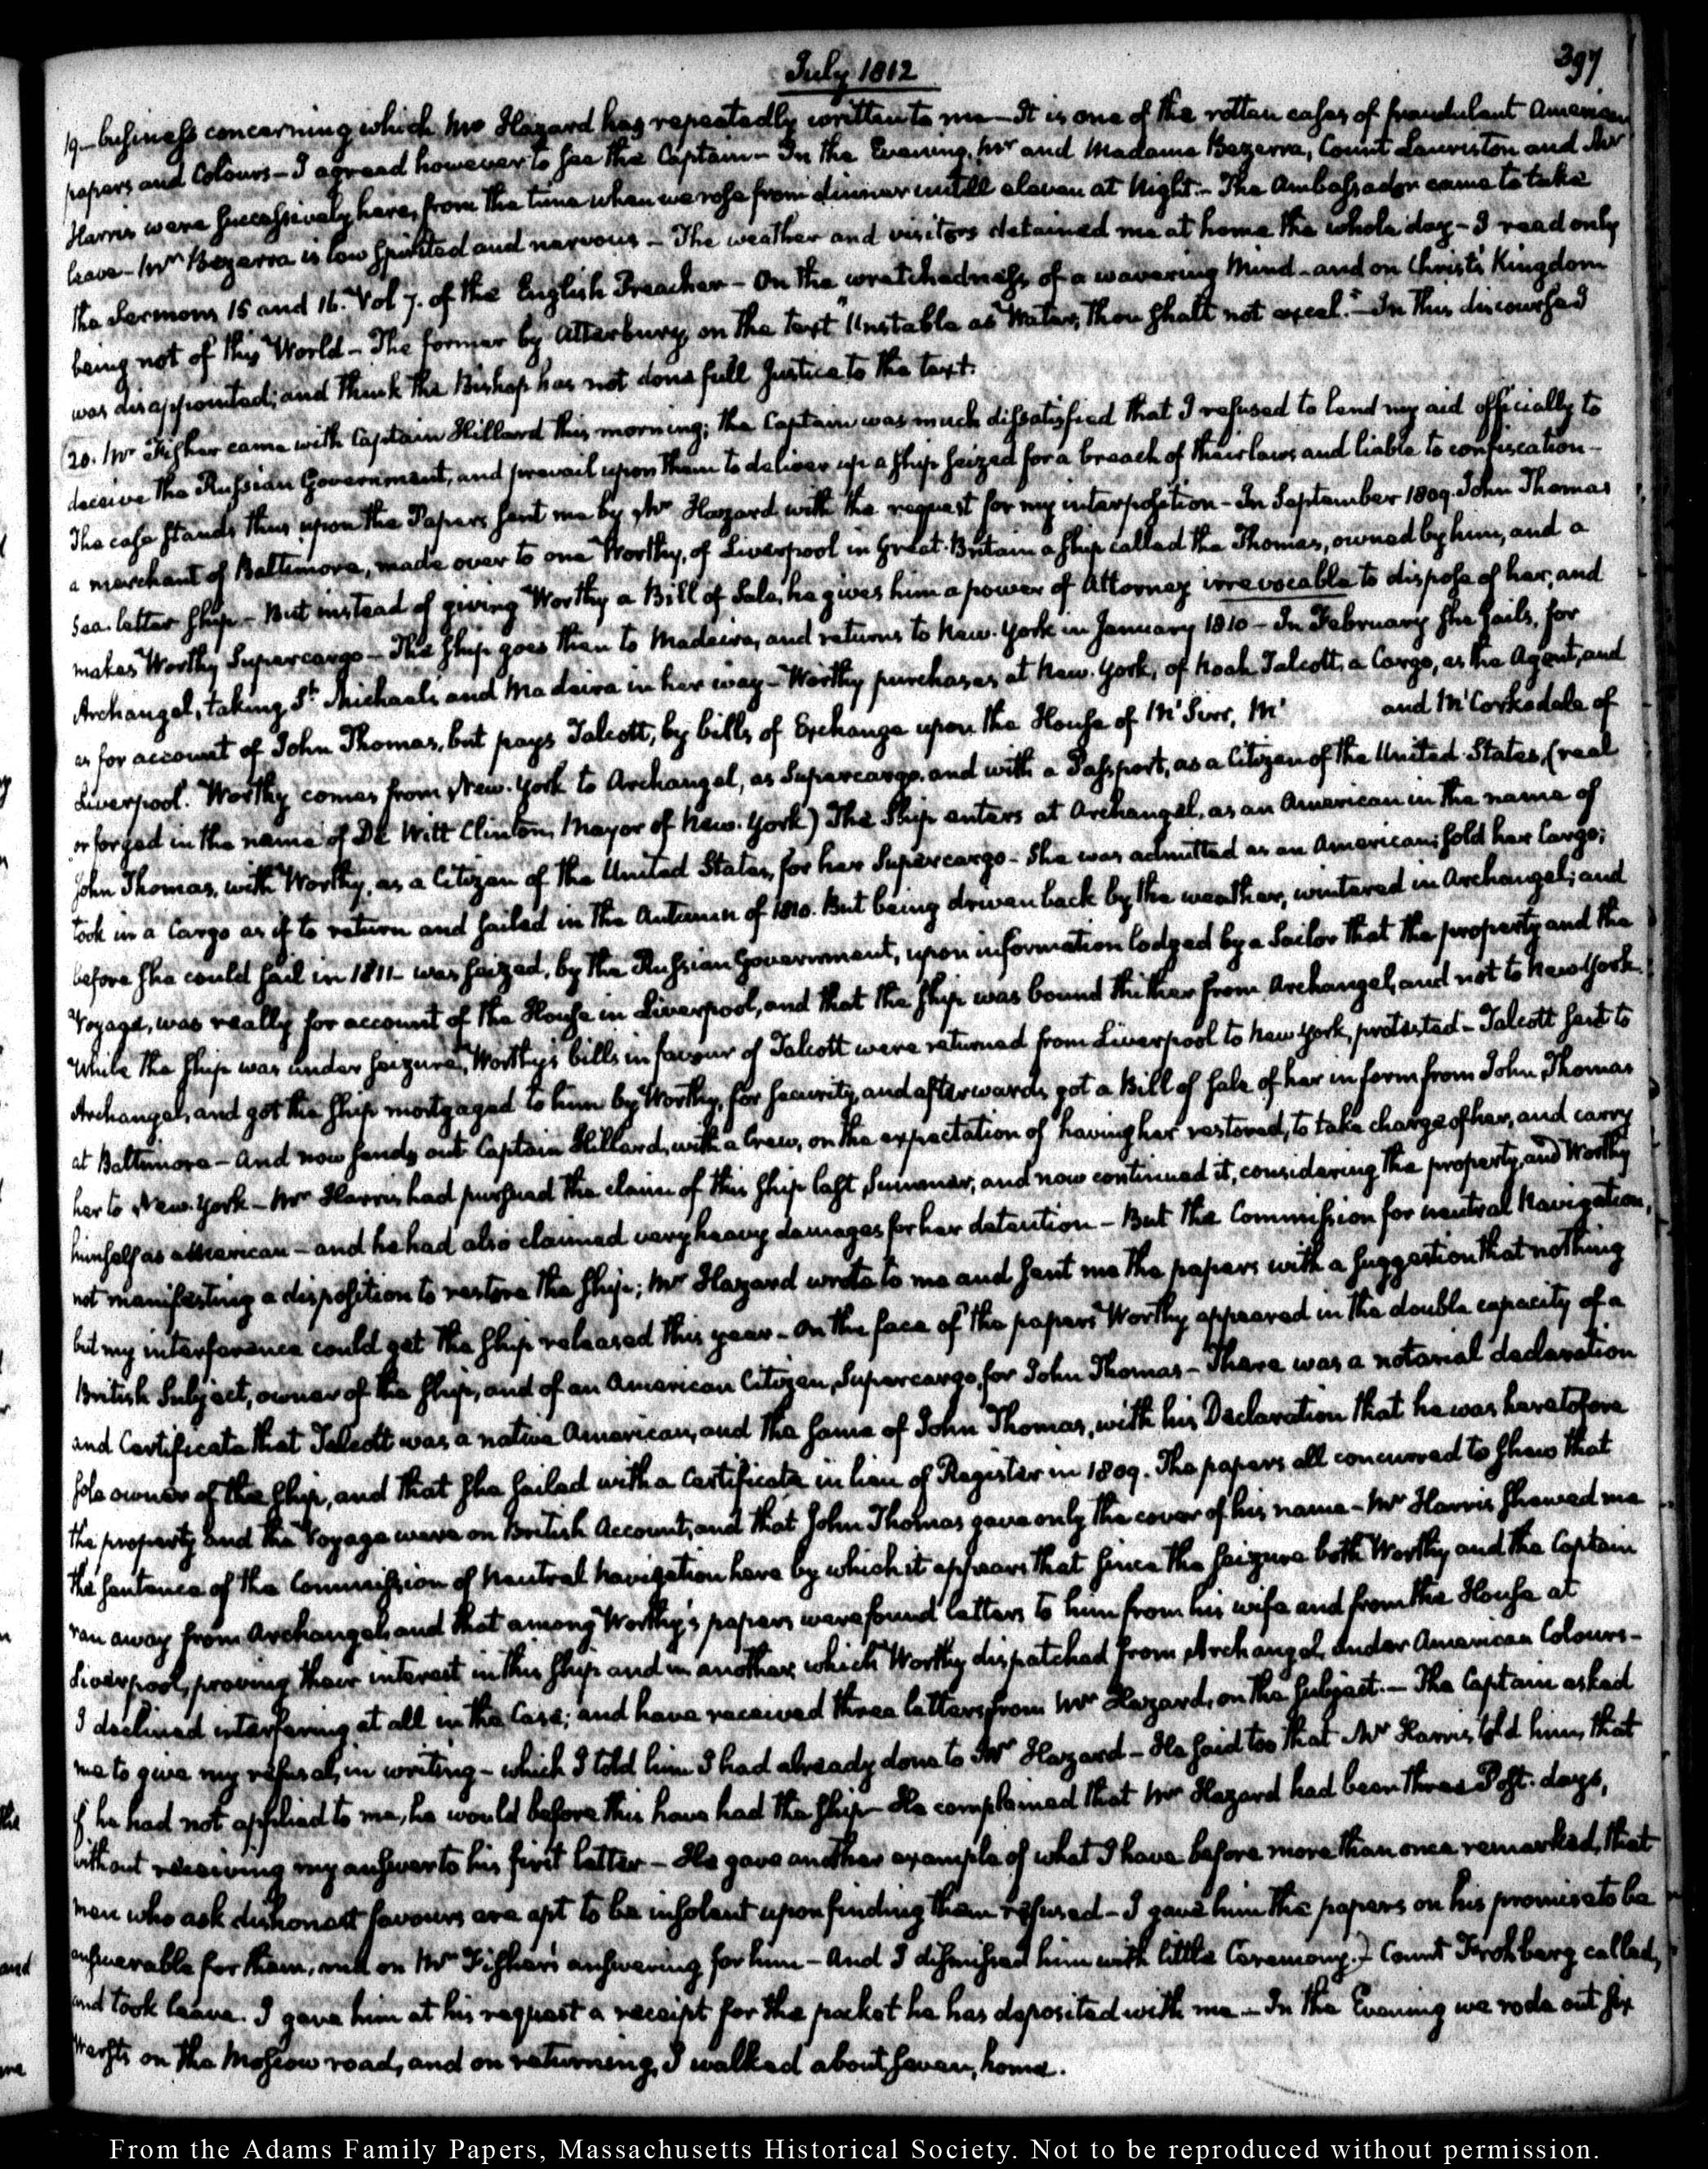 July 1812
397
19 — business concerning which Mr Hazard has repeatedly written to me — It is one of the rotten cases of fraudulent American
papers and Colours — I agreed however to see the Captain — In the Evening, Mr and Madame Bezerra, Count Lauriston and Mr
Harris were successively here, from the time when we rose from dinner untill eleven at Night. — The Ambassador came to take
leave — Mr Bezerra is low spirited and nervous — The weather and visitors detained me at home the whole day — I read only
the Sermons 15 and 16. Vol 7. of the English Preacher — On the wretchedness of a wavering Mind — and on Christ's Kingdom
being not of this World — The former by Atterbury, on the text "Unstable as Water, Thou shalt not excel." — In this discourse I
was disappointed; and think the Bishop has not done full Justice to the text.
20. Mr Fisher came with Captain Hillard this morning; the Captain was much dissatisfied that I refused to lend my aid officially to
deceive the Russian Government, and prevail upon them to deliver up a ship seized for a breach of their laws and liable to confiscation —
The case stands thus upon the Papers sent me by Mr Hazard with the request for my interposition — In September 1809. John Thomas
a merchant of Baltimore, made over to one Worthy, of Liverpool in Great-Britain a ship called the Thomas, owned by him, and a
Sea-letter ship — But instead of giving Worthy a Bill of Sale, he gives him a power of Attorney irrevocable to dispose of her, and
makes Worthy Supercargo — The ship goes then to Madeira, and returns to New-York in January 1810 — In February she sails, for
Archangel, taking St Michaels and Madeira in her way — Worthy purchases at New-York, of Noah Talcott, a Cargo, as the Agent, and
as for account of John Thomas, but pays Talcott, by bills of Exchange upon the House of McIver, Mc and McCorkadale of
Liverpool. Worthy comes from New-York to Archangel, as Supercargo, and with a Passport, as a Citizen of the United States, (real
or forged in the name of De Witt Clinton, Mayor of New-York) The Ship enters at Archangel, as an American in the name of
John Thomas, with Worthy, as a Citizen of the United States, for her Supercargo — She was admitted as an American; sold her Cargo;
took in a Cargo as if to return and sailed in the Autumn of 1810. But being driven back by the weather, wintered in Archangel; and
before she could sail in 1811 — was seized, by the Russian Government, upon information lodged by a Sailor that the property and the
Voyage, was really for account of the House in Liverpool, and that the ship was bound thither from Archangel, and not to New York.
While the ship was under seizure, Worthy's bills in favour of Talcott were returned from Liverpool to New York, protested — Talcott sent to
Archangel, and got the ship mortgaged to him by Worthy, for security, and afterwards got a Bill of Sale of her in form from John Thomas
at Baltimore — And now sends out Captain Hillard, with a Crew, on the expectation of having her restored, to take charge of her, and carry
her to New-York — Mr Harris had pursued the claim of this ship last Summer, and now continued it, considering the property, and Worthy
himself as American — and he had also claimed very heavy damages for her detention — But the Commission for neutral Navigation,
not manifesting a disposition to restore the ship; Mr Hazard wrote to me and sent me the papers with a suggestion that nothing
but my interference could get the ship released this year — On the face of the papers Worthy appeared in the double capacity of a
British Subject, owner of the ship, and of an American Citizen, Supercargo for John Thomas — There was a notarial declaration
and Certificate that Talcott was a native American, and the same of John Thomas, with his Declaration that he was heretofore
sole owner of the ship, and that she sailed with a Certificate in lieu of Register in 1809. The papers all concurred to shew that
the property and the Voyage were on British Account, and that John Thomas gave only the cover of his name — Mr Harris shewed me
the sentence of the Commission of Neutral Navigation here by which it appears that since the seizure both Worthy and the Captain
ran away from Archangel, and that among Worthy's papers were found letters to him from his wife and from the House at
Liverpool, proving their interest in this ship and in another, which Worthy dispatched from Archangel, under American Colours —
I declined interfering at all in the Case; and have received three letters from Mr Hazard, on the subject. — The Captain asked
me to give my refusal, in writing — which I told him I had already done to Mr Hazard — He said too that Mr Harris told him, that
if he had not applied to me, he would before this have had the ship — He complained that Mr Hazard had been three Post-days,
without receiving my answer to his first letter — He gave another example of what I have before more than once remarked, that
men who ask dishonest favours are apt to be insolent upon finding them refused — I gave him the papers on his promise to be
answerable for them, and on Mr Fisher's answering for him — And I dismissed him with little Ceremony.) Count Frohberg called,
and took leave. I gave him at his request a receipt for the packet he has deposited with me — In the Evening we rode out six
Wersts on the Moscow road, and on returning, I walked about seven, home.
From the Adams Family Papers, Massachusetts Historical Society. Not to be reproduced without permission.